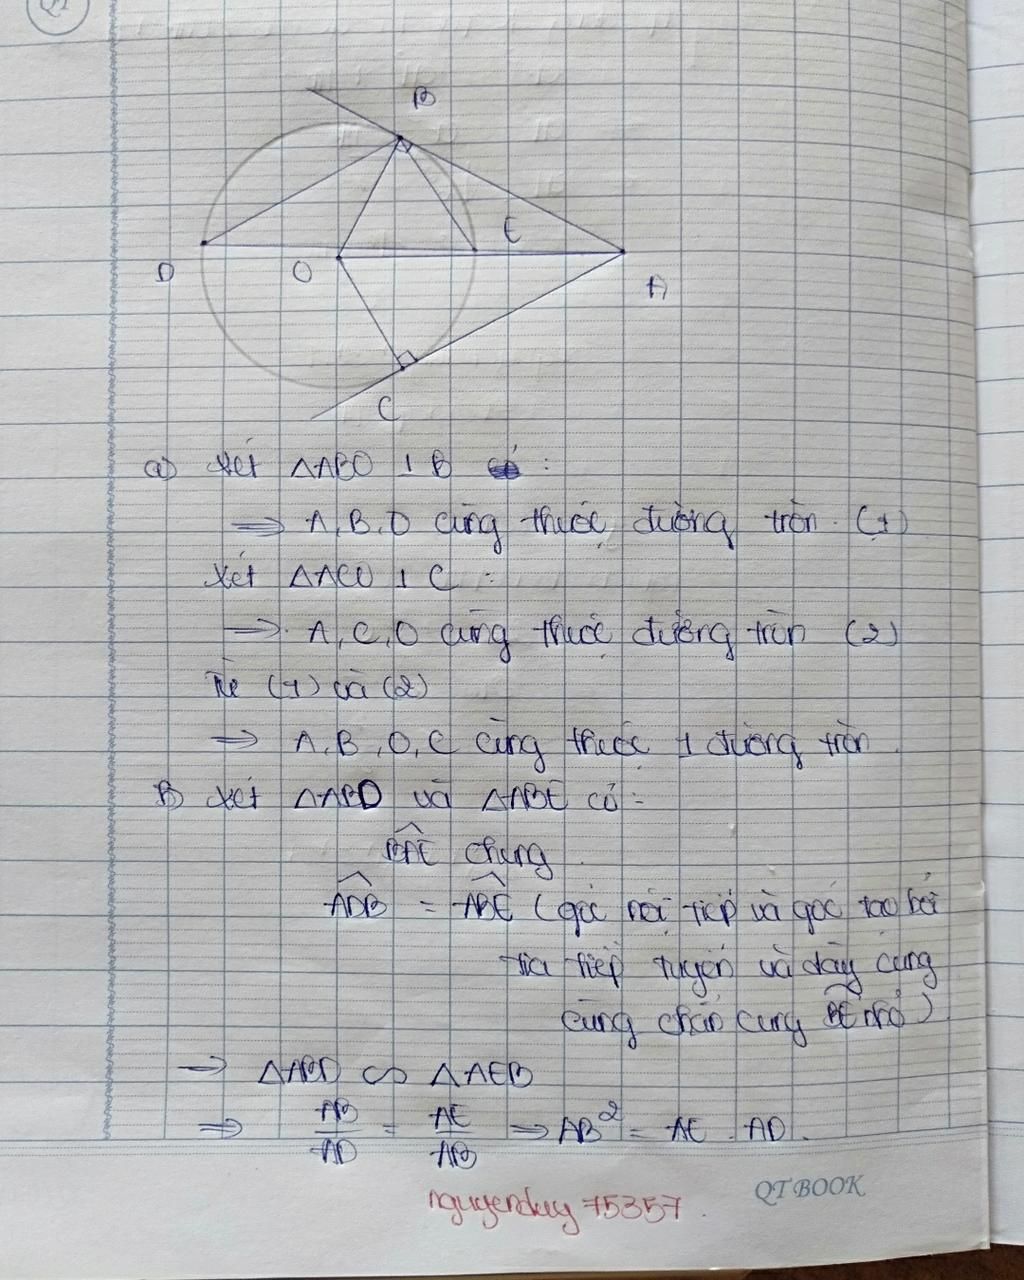 B
E
D
O
A
C
a) Xét △ABO ⊥ B :
=> A, B, O cùng thuộc đường tròn. (1)
Xét △ACO ⊥ C :
=> A, C, O cùng thuộc đường tròn (2)
Từ (1) và (2)
=> A, B, O, C cùng thuộc 1 đường tròn.
b) Xét △ABD và △ABE có:
\widehat{BAE} chung
\widehat{ADB} = \widehat{ABE} (góc nội tiếp và góc tạo bởi
tia tiếp tuyến và dây cung
cùng chắn cung BE nhỏ)
=> △ABD ∽ △AEB
=> AB/AD = AE/AB => AB² = AE . AD.
nguyenduy 75357.
QT BOOK